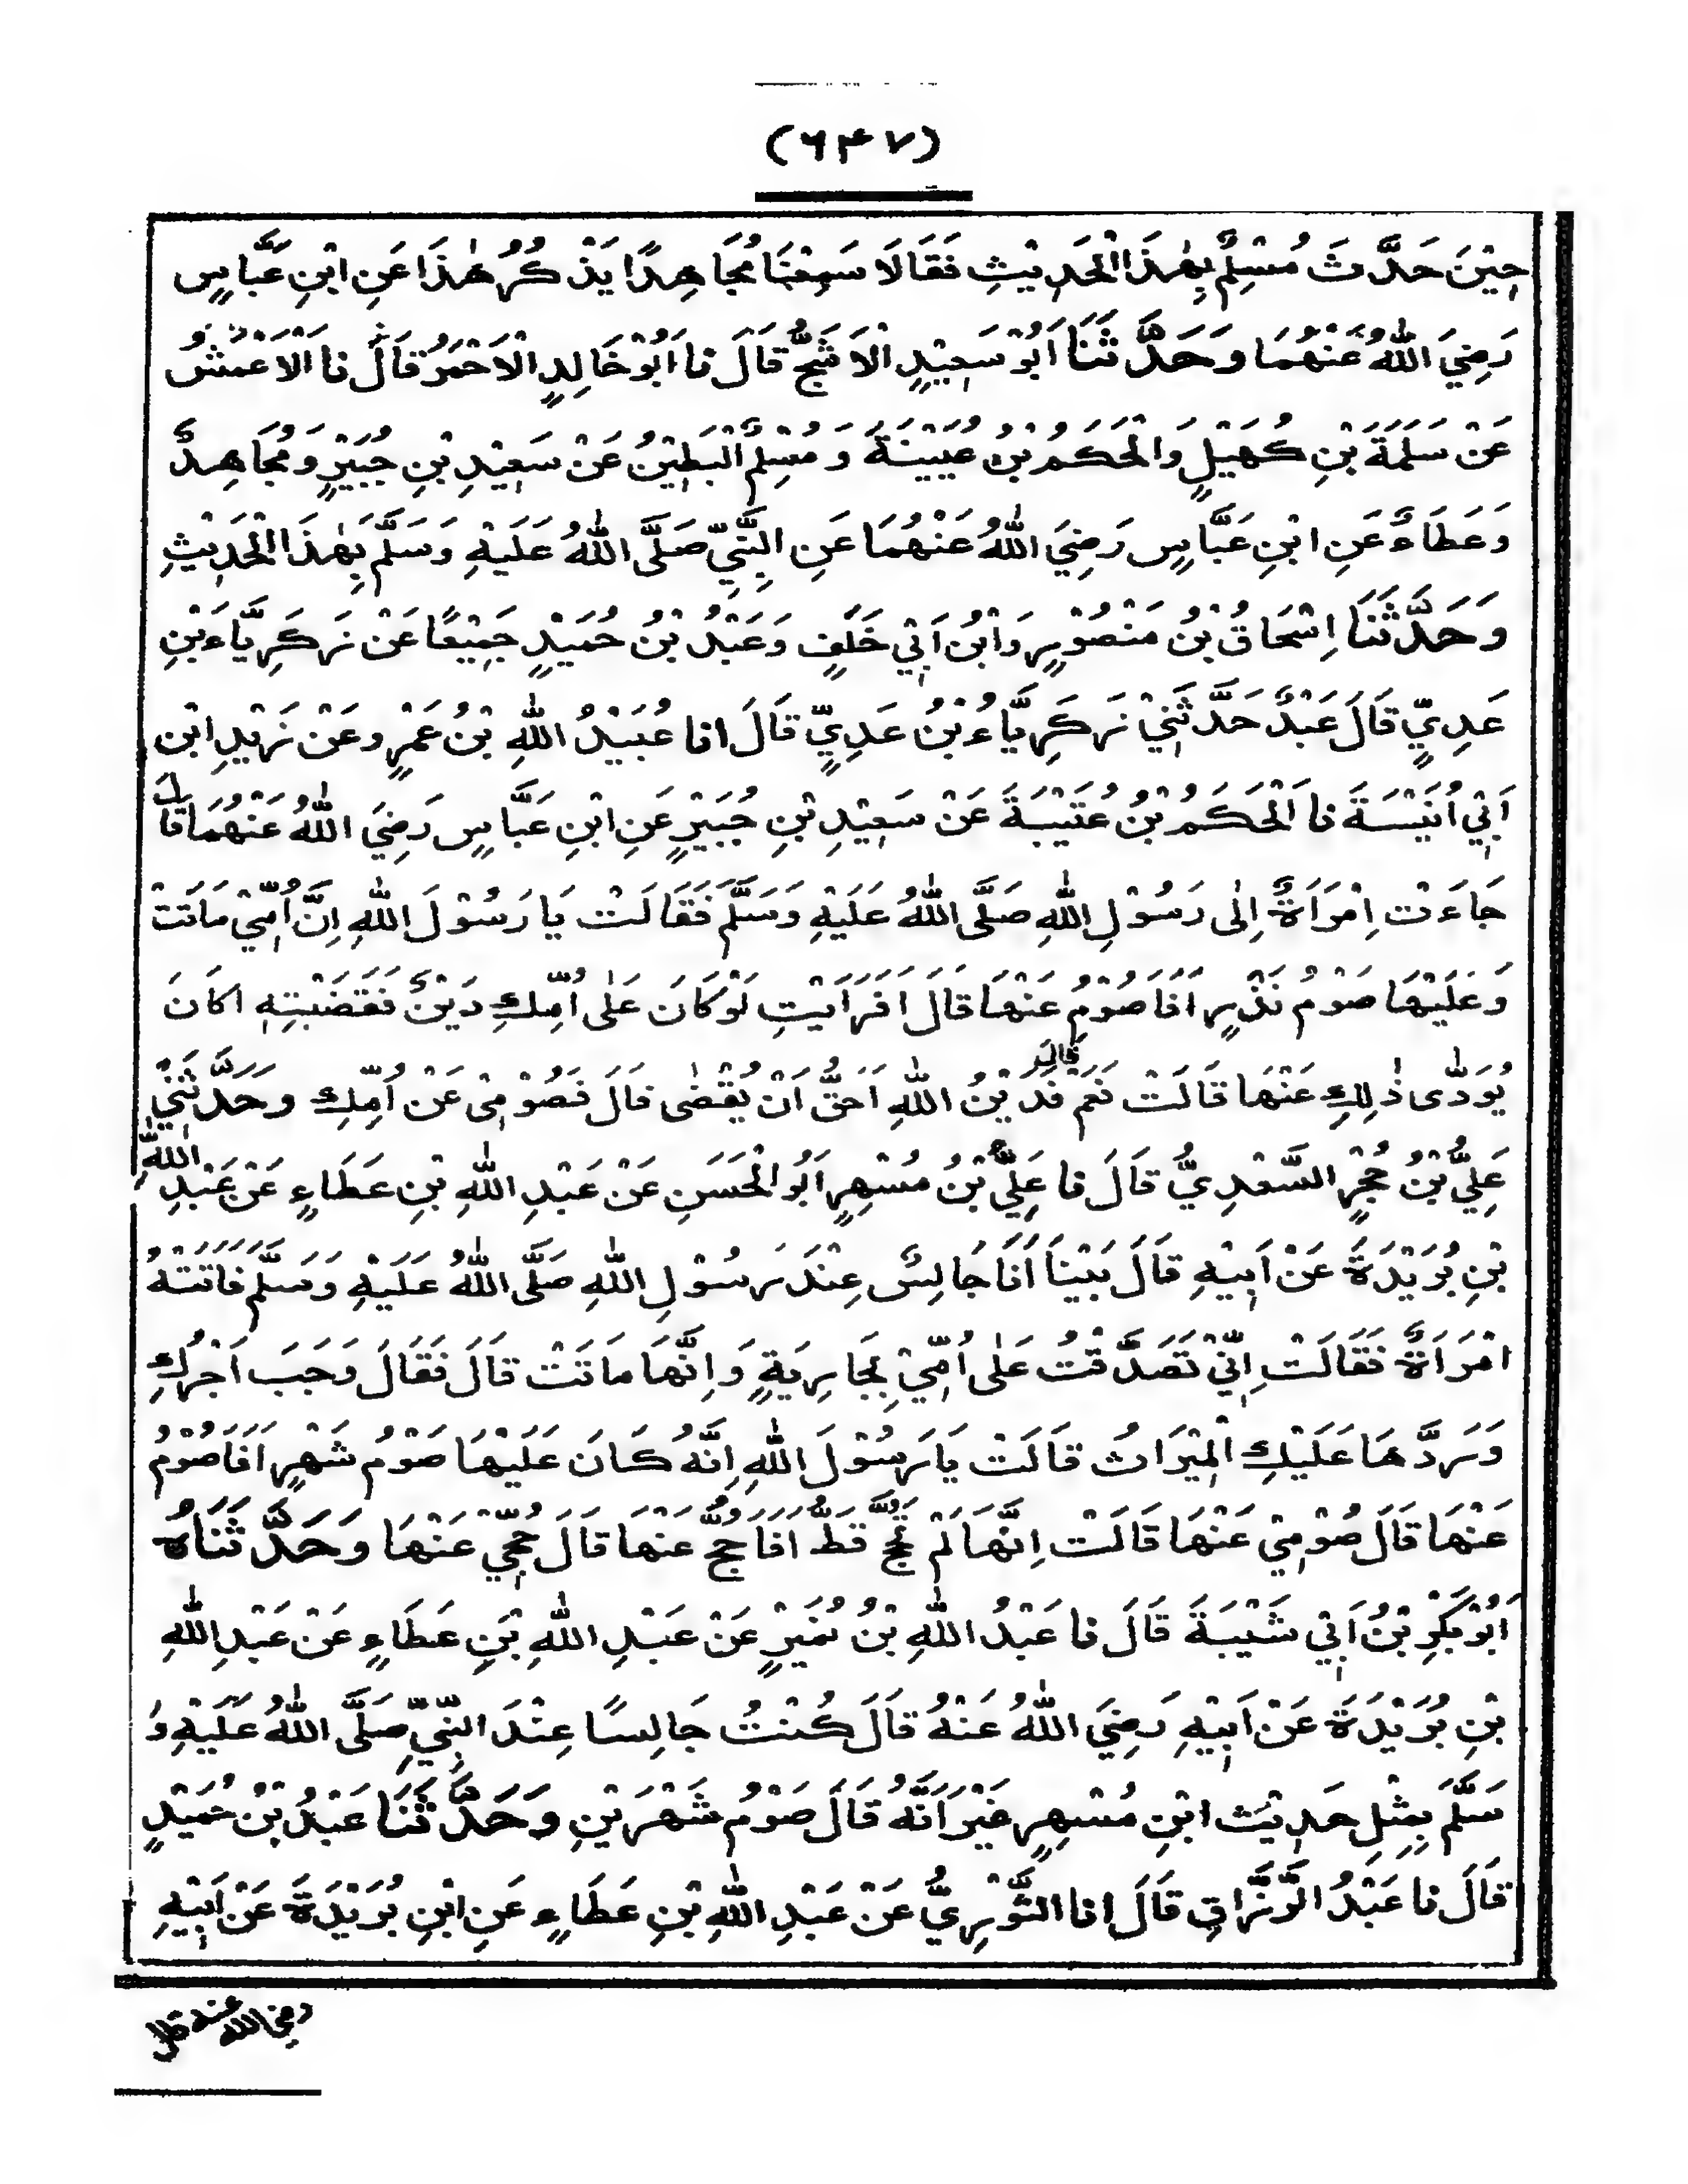 (٦٤٧)
حِيْنَ حَدَّثَ مُسْلِمٌ بِهٰذَا الْحَدِيْثِ فَقَالَا سَمِعْنَا مُجَاهِدًا يَذْكُرُ هٰذَا عَنِ ابْنِ عَبَّاسٍ
رَضِيَ اللّٰهُ عَنْهُمَا وَحَدَّثَنَا اَبُوْ سَعِيْدٍ الْاَشَجُّ قَالَ نَا اَبُوْ خَالِدٍ الْاَحْمَرُ قَالَ نَا الْاَعْمَشُ
عَنْ سَلَمَةَ بْنِ كُهَيْلٍ وَالْحَكَمُ بْنُ عُيَيْنَةَ وَ مُسْلِمٌ الْبَطِيْنُ عَنْ سَعِيْدِ بْنِ جُبَيْرٍ وَمُجَاهِدٌ
وَعَطَاءٌ عَنِ ابْنِ عَبَّاسٍ رَضِيَ اللّٰهُ عَنْهُمَا عَنِ النَّبِيِّ صَلَّى اللّٰهُ عَلَيْهِ وَسَلَّمَ بِهٰذَا الْحَدِيْثِ
وَحَدَّثَنَا اِسْحَاقُ بْنُ مَنْصُوْرٍ وَابْنُ اَبِيْ خَلَفٍ وَعَبْدُ بْنُ حُمَيْدٍ جَمِيْعًا عَنْ زَكَرِيَّاءَ بْنِ
عَدِيٍّ قَالَ عَبْدٌ حَدَّثَنِيْ زَكَرِيَّاءُ بْنُ عَدِيٍّ قَالَ انا عُبَيْدُ اللّٰهِ بْنُ عَمْرٍو عَنْ زَيْدِ ابْنِ
اَبِيْ اُنَيْسَةَ نَا الْحَكَمُ بْنُ عُتَيْبَةَ عَنْ سَعِيْدِ بْنِ جُبَيْرٍ عَنِ ابْنِ عَبَّاسٍ رَضِيَ اللّٰهُ عَنْهُمَا قَالَ
جَاءَتْ اِمْرَاَةٌ اِلٰى رَسُوْلِ اللّٰهِ صَلَّى اللّٰهُ عَلَيْهِ وَسَلَّمَ فَقَالَتْ يَا رَسُوْلَ اللّٰهِ اِنَّ اُمِّيْ مَاتَتْ
وَعَلَيْهَا صَوْمُ نَذْرٍ اَفَاَصُوْمُ عَنْهَا قَالَ اَفَرَاَيْتِ لَوْ كَانَ عَلٰى اُمِّكِ دَيْنٌ فَقَضَيْتِهِ اَكَانَ
يُوَدّٰى ذٰلِكِ عَنْهَا قَالَتْ نَعَمْ قَالَ فَدَيْنُ اللّٰهِ اَحَقُّ اَنْ يُقْضٰى قَالَ فَصُوْمِيْ عَنْ اُمِّكِ وَحَدَّثَنِيْ
عَلِيُّ بْنُ حُجْرٍ السَّعْدِيُّ قَالَ نَا عَلِيُّ بْنُ مُسْهِرٍ اَبُو الْحَسَنِ عَنْ عَبْدِ اللّٰهِ بْنِ عَطَاءٍ عَنْ عَبْدِ اللّٰهِ
بْنِ بُرَيْدَةَ عَنْ اَبِيْهِ قَالَ بَيْنَا اَنَا جَالِسٌ عِنْدَ رَسُوْلِ اللّٰهِ صَلَّى اللّٰهُ عَلَيْهِ وَسَلَّمَ فَاَتَتْهُ
امْرَاَةٌ فَقَالَتْ اِنِّيْ تَصَدَّقْتُ عَلٰى اُمِّيْ بِجَارِيَةٍ وَاِنَّهَا مَاتَتْ قَالَ فَقَالَ وَجَبَ اَجْرُكِ
وَرَدَّهَا عَلَيْكِ الْمِيْرَاثُ قَالَتْ يَا رَسُوْلَ اللّٰهِ اِنَّهُ كَانَ عَلَيْهَا صَوْمُ شَهْرٍ اَفَاَصُوْمُ
عَنْهَا قَالَ صُوْمِيْ عَنْهَا قَالَتْ اِنَّهَا لَمْ تَحُجَّ قَطُّ اَفَاَحُجُّ عَنْهَا قَالَ حُجِّيْ عَنْهَا وَحَدَّثَنَاهُ
اَبُوْ بَكْرِ بْنُ اَبِيْ شَيْبَةَ قَالَ نَا عَبْدُ اللّٰهِ بْنُ نُمَيْرٍ عَنْ عَبْدِ اللّٰهِ بْنِ عَطَاءٍ عَنْ عَبْدِ اللّٰهِ
بْنِ بُرَيْدَةَ عَنْ اَبِيْهِ رَضِيَ اللّٰهُ عَنْهُ قَالَ كُنْتُ جَالِسًا عِنْدَ النَّبِيِّ صَلَّى اللّٰهُ عَلَيْهِ وَ
سَلَّمَ بِمِثْلِ حَدِيْثِ ابْنِ مُسْهِرٍ غَيْرَ اَنَّهُ قَالَ صَوْمُ شَهْرَيْنِ وَحَدَّثَنَا عَبْدُ بْنُ حُمَيْدٍ
قَالَ نَا عَبْدُ الرَّزَّاقِ قَالَ انا الثَّوْرِيُّ عَنْ عَبْدِ اللّٰهِ بْنِ عَطَاءٍ عَنِ ابْنِ بُرَيْدَةَ عَنْ اَبِيْهِ
رضي الله عنه قال